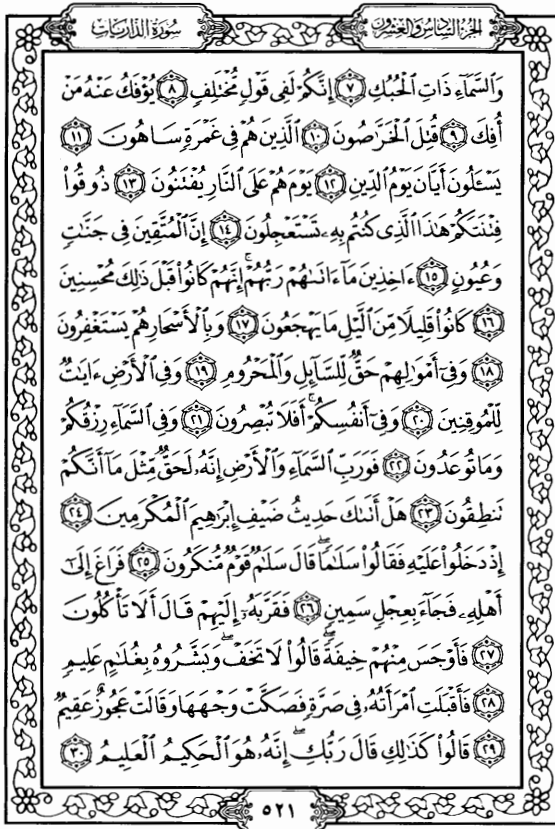 الجزء السادس والعشرون
سورة الذاريات
وَالسَّمَاءِ ذَاتِ الْحُبُكِ ٧ إِنَّكُمْ لَفِي قَوْلٍ مُّخْتَلِفٍ ٨ يُؤْفَكُ عَنْهُ مَنْ
أُفِكَ ٩ قُتِلَ الْخَرَّاصُونَ ١٠ الَّذِينَ هُمْ فِي غَمْرَةٍ سَاهُونَ ١١
يَسْـَٔلُونَ أَيَّانَ يَوْمُ الدِّينِ ١٢ يَوْمَ هُمْ عَلَى النَّارِ يُفْتَنُونَ ١٣ ذُوقُوا۟
فِتْنَتَكُمْ هَٰذَا الَّذِي كُنتُم بِهِۦ تَسْتَعْجِلُونَ ١٤ إِنَّ الْمُتَّقِينَ فِي جَنَّٰتٍ
وَعُيُونٍ ١٥ ءَاخِذِينَ مَآ ءَاتَىٰهُمْ رَبُّهُمْ ۚ إِنَّهُمْ كَانُوا۟ قَبْلَ ذَٰلِكَ مُحْسِنِينَ
١٦ كَانُوا۟ قَلِيلًا مِّنَ الَّيْلِ مَا يَهْجَعُونَ ١٧ وَبِالْأَسْحَارِ هُمْ يَسْتَغْفِرُونَ
١٨ وَفِىٓ أَمْوَٰلِهِمْ حَقٌّ لِّلسَّآئِلِ وَالْمَحْرُومِ ١٩ وَفِى الْأَرْضِ ءَايَٰتٌ
لِّلْمُوقِنِينَ ٢٠ وَفِىٓ أَنفُسِكُمْ ۚ أَفَلَا تُبْصِرُونَ ٢١ وَفِى السَّمَآءِ رِزْقُكُمْ
وَمَا تُوعَدُونَ ٢٢ فَوَرَبِّ السَّمَآءِ وَالْأَرْضِ إِنَّهُۥ لَحَقٌّ مِّثْلَ مَآ أَنَّكُمْ
تَنطِقُونَ ٢٣ هَلْ أَتَىٰكَ حَدِيثُ ضَيْفِ إِبْرَٰهِيمَ الْمُكْرَمِينَ ٢٤
إِذْ دَخَلُوا۟ عَلَيْهِ فَقَالُوا۟ سَلَٰمًا ۖ قَالَ سَلَٰمٌ قَوْمٌ مُّنكَرُونَ ٢٥ فَرَاغَ إِلَىٰٓ
أَهْلِهِۦ فَجَآءَ بِعِجْلٍ سَمِينٍ ٢٦ فَقَرَّبَهُۥٓ إِلَيْهِمْ قَالَ أَلَا تَأْكُلُونَ
٢٧ فَأَوْجَسَ مِنْهُمْ خِيفَةً ۖ قَالُوا۟ لَا تَخَفْ ۖ وَبَشَّرُوهُ بِغُلَٰمٍ عَلِيمٍ
٢٨ فَأَقْبَلَتِ امْرَأَتُهُۥ فِى صَرَّةٍ فَصَكَّتْ وَجْهَهَا وَقَالَتْ عَجُوزٌ عَقِيمٌ
٢٩ قَالُوا۟ كَذَٰلِكِ قَالَ رَبُّكِ ۖ إِنَّهُۥ هُوَ الْحَكِيمُ الْعَلِيمُ ٣٠
٥٢١